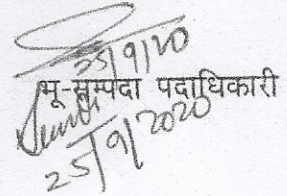 25/9/20
भू-सम्पदा पदाधिकारी
25/9/2020